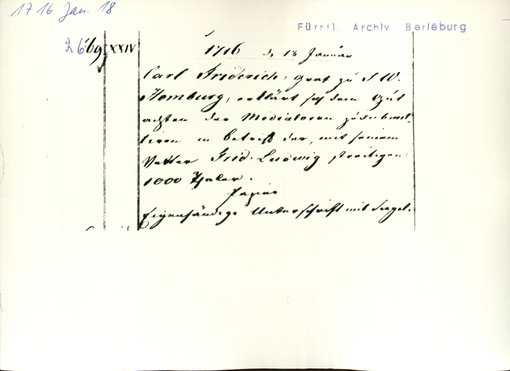 1716 Jan. 18
Fürstl. Archiv Berleburg
2669 XXIV
1716 d. 18 Januar
Carl Friderich, Graf zu S W.
Homburg, erklärt sich dem Gut
achten der Mediatoren zu submit
tiren in betreff der, mit seinem
Vetter Frid. Ludwig streitigen
1000 Thaler.
Papier
Eigenhändige Unterschrift mit Siegel.